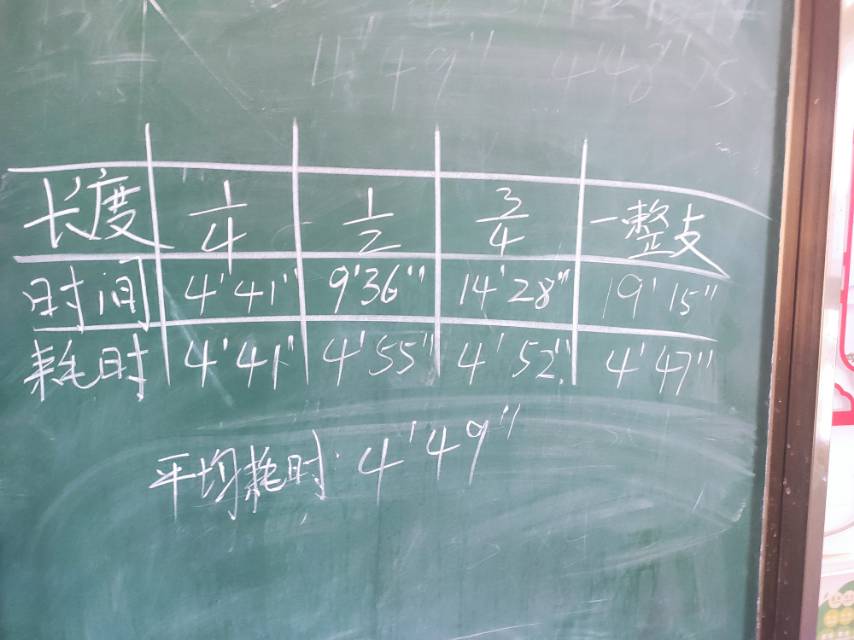 长度 1/4 1/2 3/4 一整支
时间 4'41" 9'36" 14'28" 19'15"
耗时 4'41" 4'55" 4'52" 4'47"
平均耗时: 4'49"